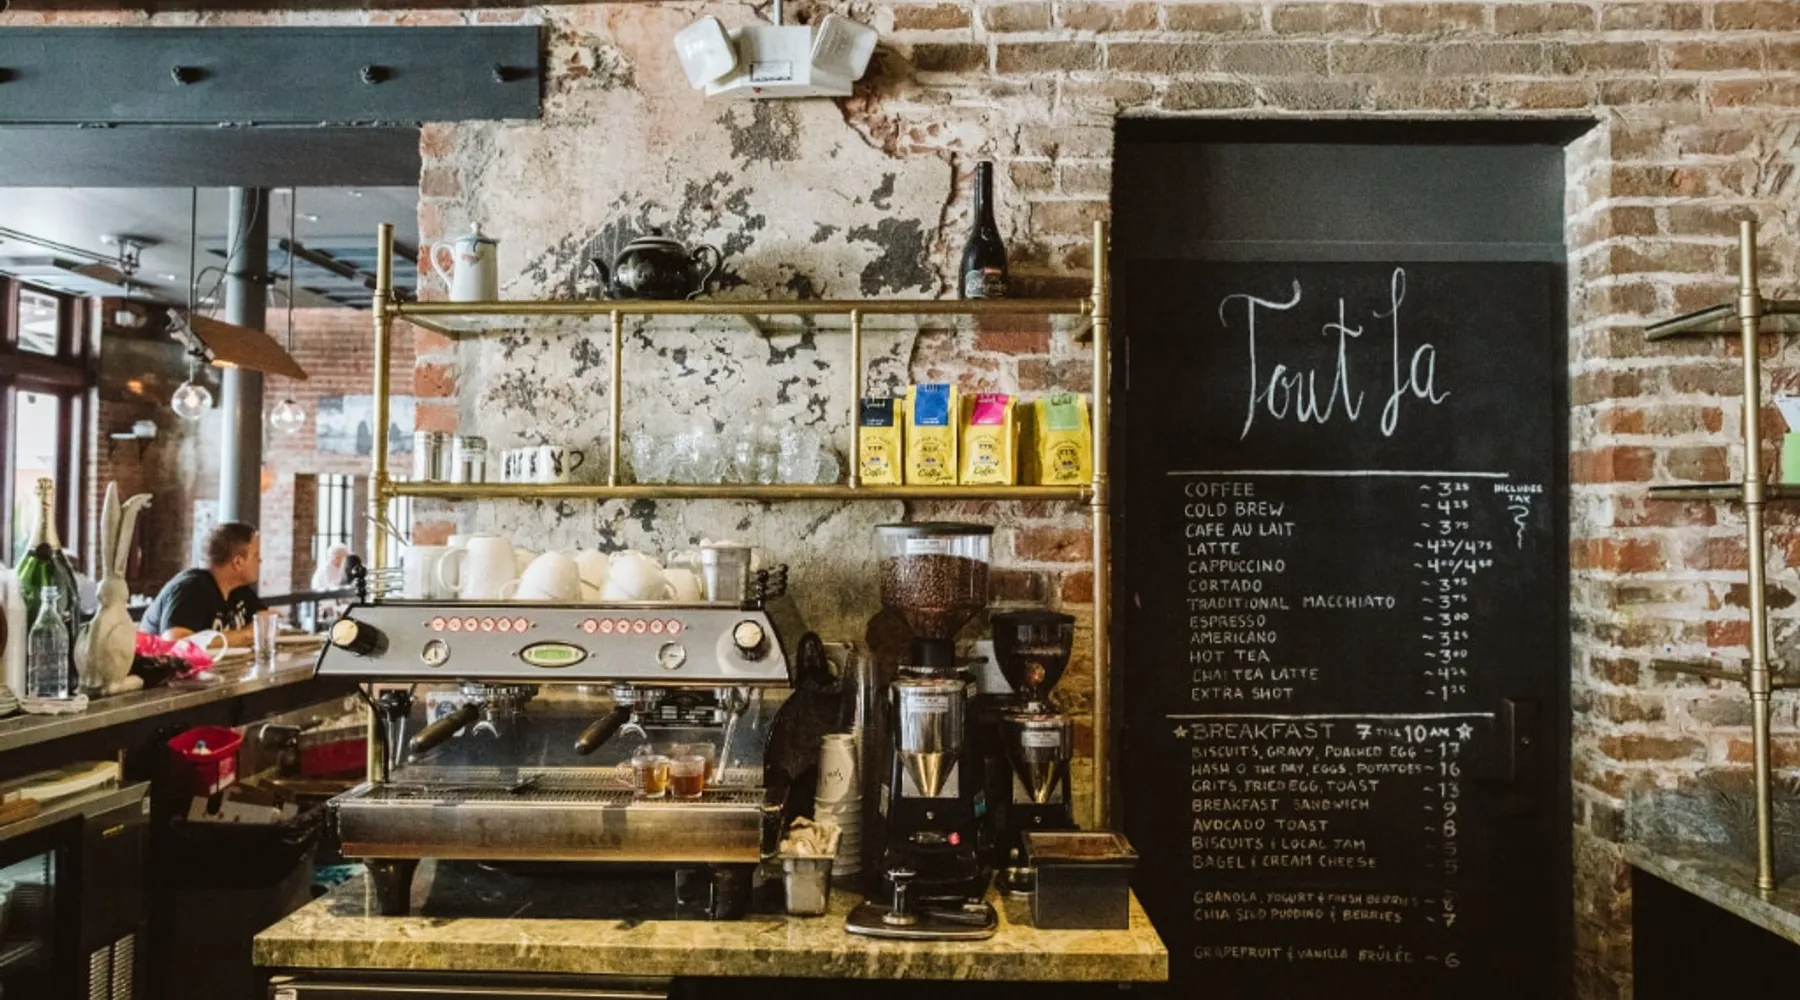 Tout La
COFFEE ~ 3.25
INCLUDES
TAX
COLD BREW ~ 4.25
CAFE AU LAIT ~ 3.75
LATTE ~ 4.25/4.75
CAPPUCCINO ~ 4.00/4.50
CORTADO ~ 3.75
TRADITIONAL MACCHIATO ~ 3.75
ESPRESSO ~ 3.00
AMERICANO ~ 3.25
HOT TEA ~ 3.00
CHAI TEA LATTE ~ 4.25
EXTRA SHOT ~ 1.25
☆ BREAKFAST 7 TILL 10 AM ☆
BISCUITS, GRAVY, POACHED EGG ~ 17
HASH O THE DAY, EGGS, POTATOES ~ 16
GRITS, FRIED EGG, TOAST ~ 13
BREAKFAST SANDWICH ~ 9
AVOCADO TOAST ~ 8
BISCUITS & LOCAL JAM ~ 5
BAGEL & CREAM CHEESE ~ 5
GRANOLA, YOGURT & FRESH BERRIES ~ 8
CHIA SEED PUDDING & BERRIES ~ 7
GRAPEFRUIT & VANILLA BRÛLÉE ~ 6
Coffee
Coffee
Coffee